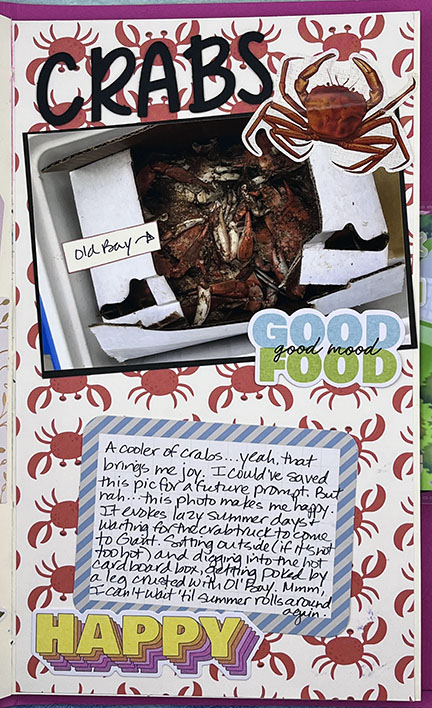 CRABS
Old Bay →
GOOD
good mood
FOOD
A cooler of crabs...yeah, that
brings me joy. I could've saved
this pic for a future prompt. But
nah...this photo makes me happy.
It evokes lazy summer days +
waiting for the crab truck to come
to Giant. Sitting outside (if it's not
too hot) and digging into the hot
cardboard box, getting poked by
a leg crusted with Ol' Bay. Mmm,
I can't wait 'til summer rolls around
again.
HAPPY